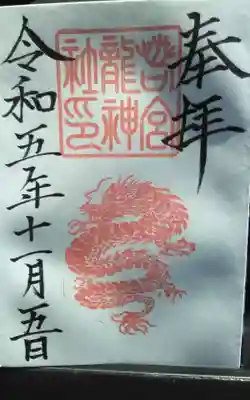 奉拝
宮
龍神
社印
令和五年十一月五日